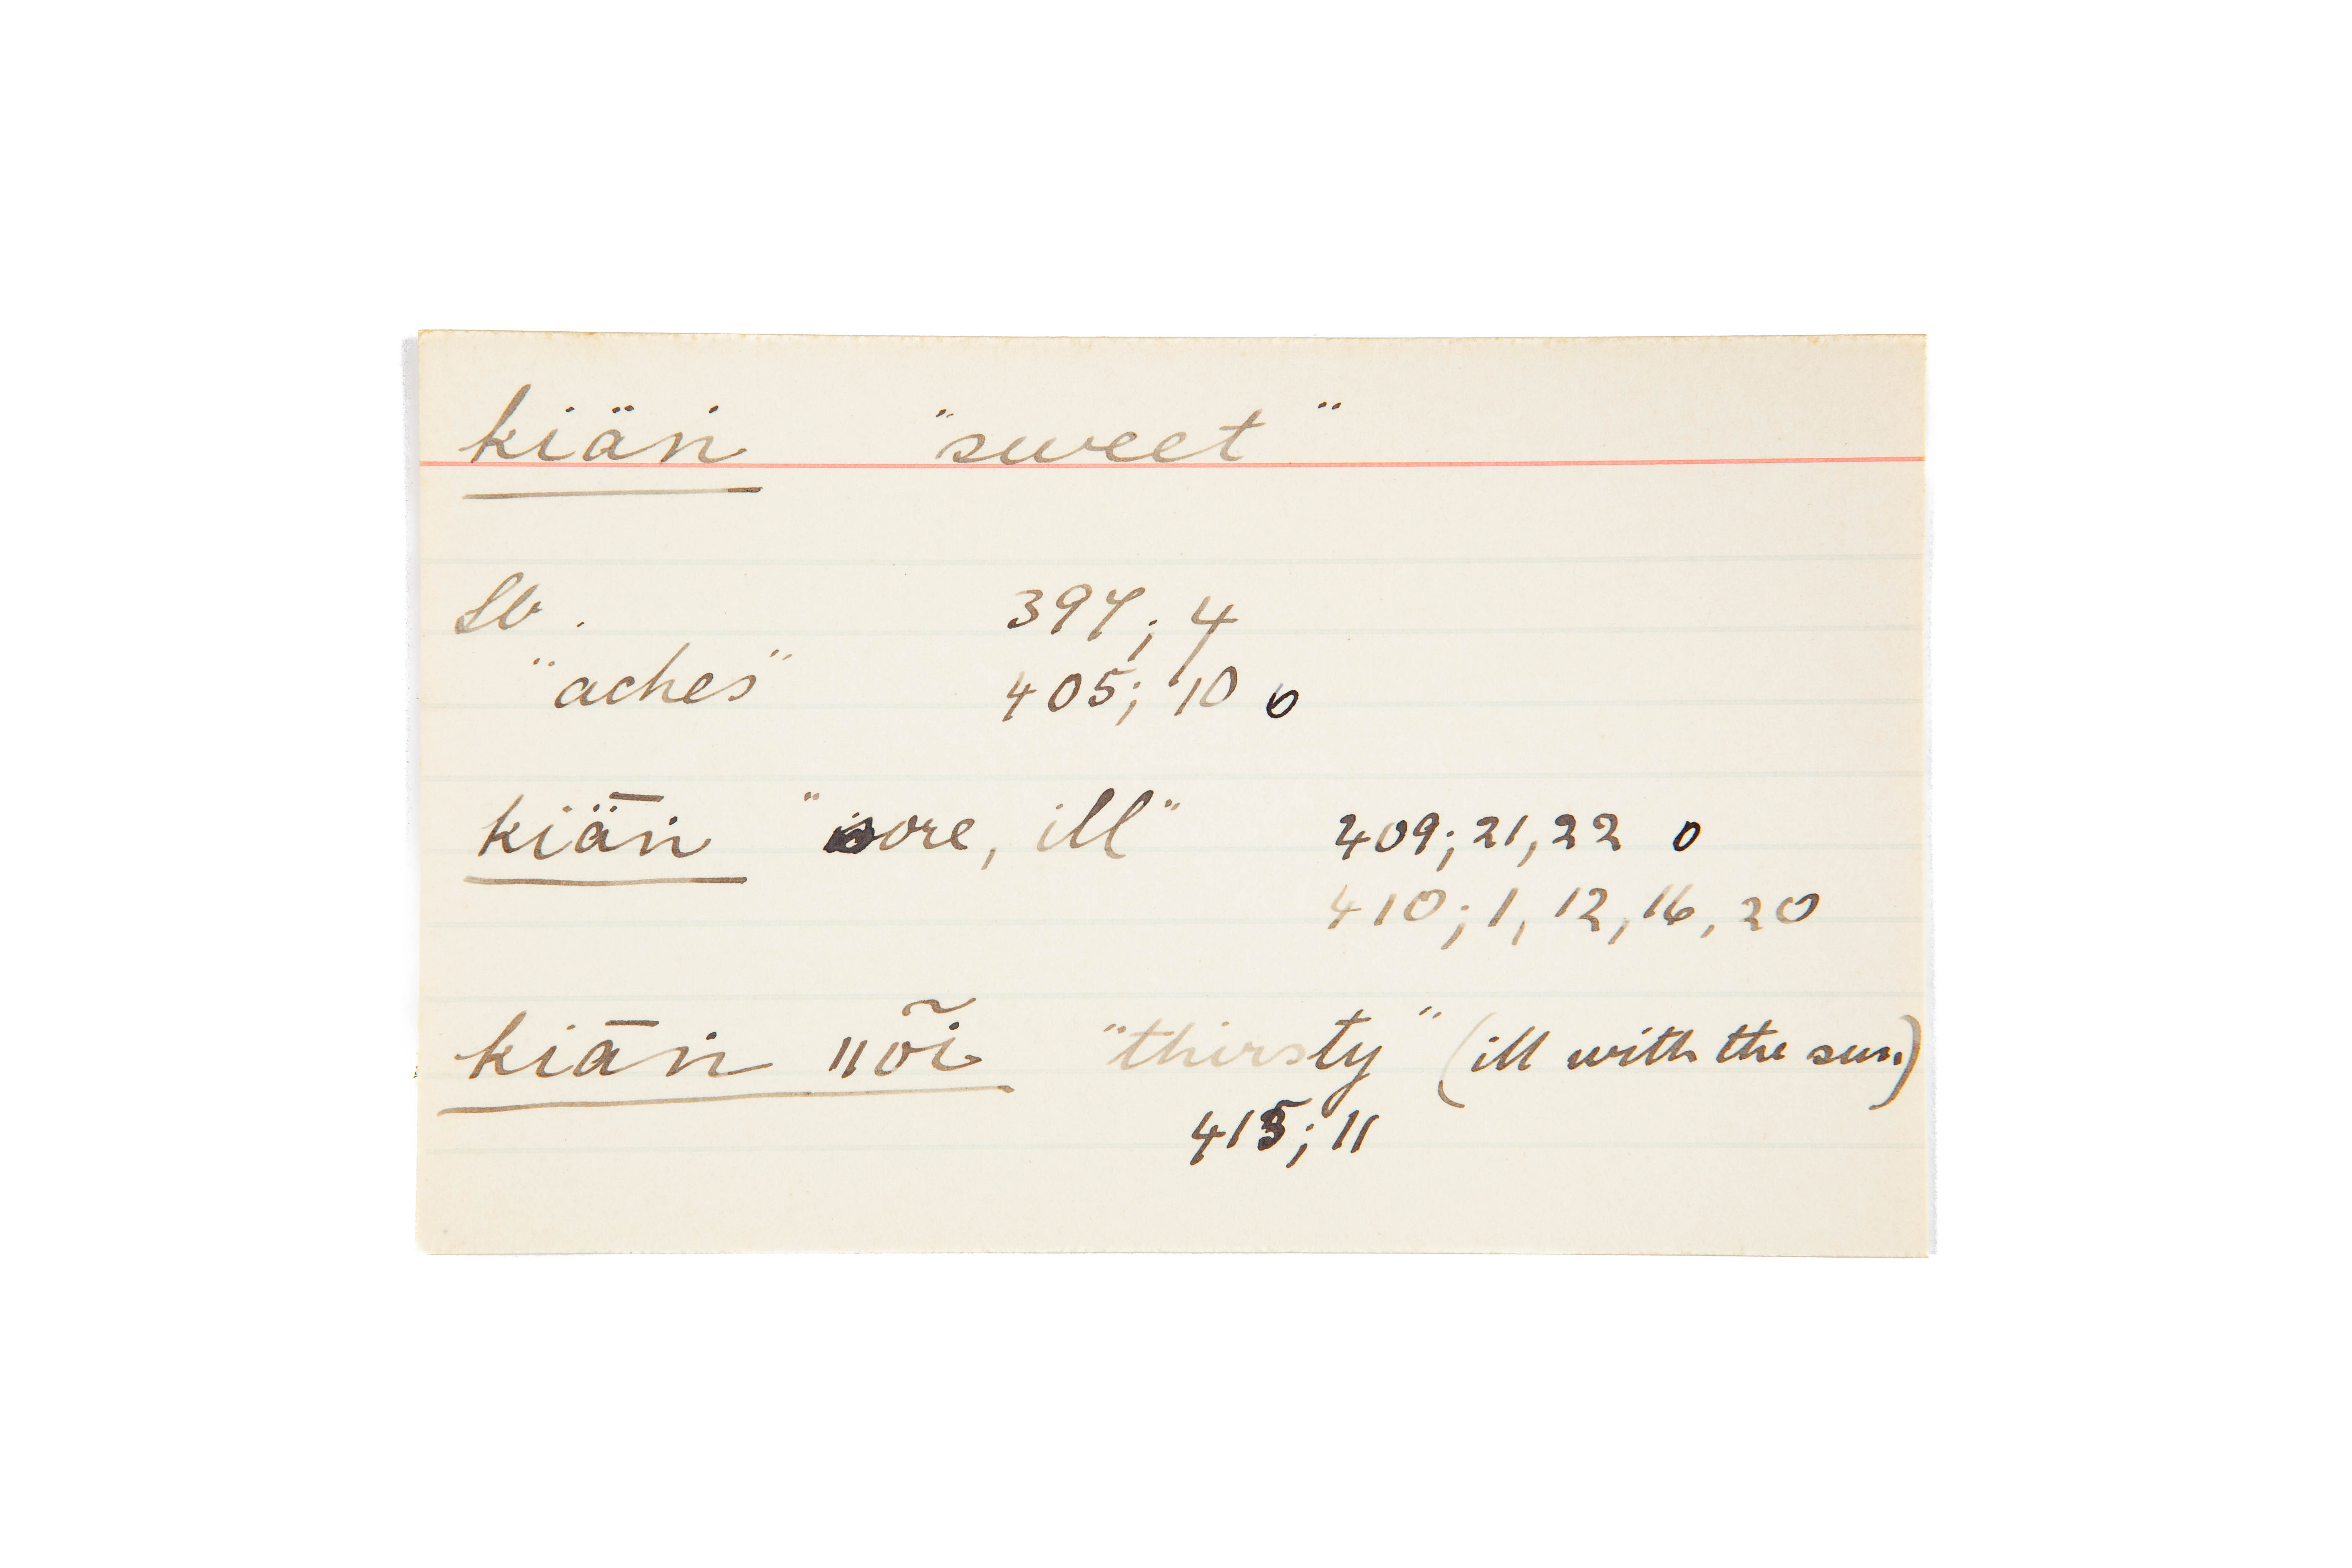 kïän̈ "sweet"
Lb. 397; 4
"aches" 405; 10 o
kiǟn̈ "sore, ill" 409; 21, 22 o
410; 1, 12, 16, 20
kiān̈ ǁõi "thirsty" (ill with the sun)
415; 11